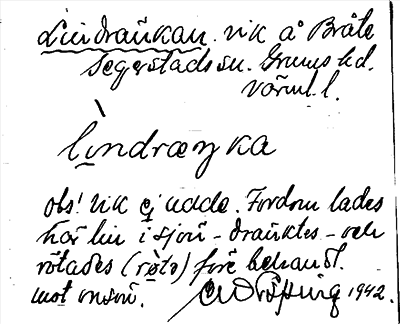 Lindränkan. vik å Bråte
Segerstads sn. Grums hd.
Värml. l.
lìndræŋka
obs! vik ej udde. Fordom lades
här lin i sjön – dränktes – och
rötades (røto) före behandl.
mot
1942.